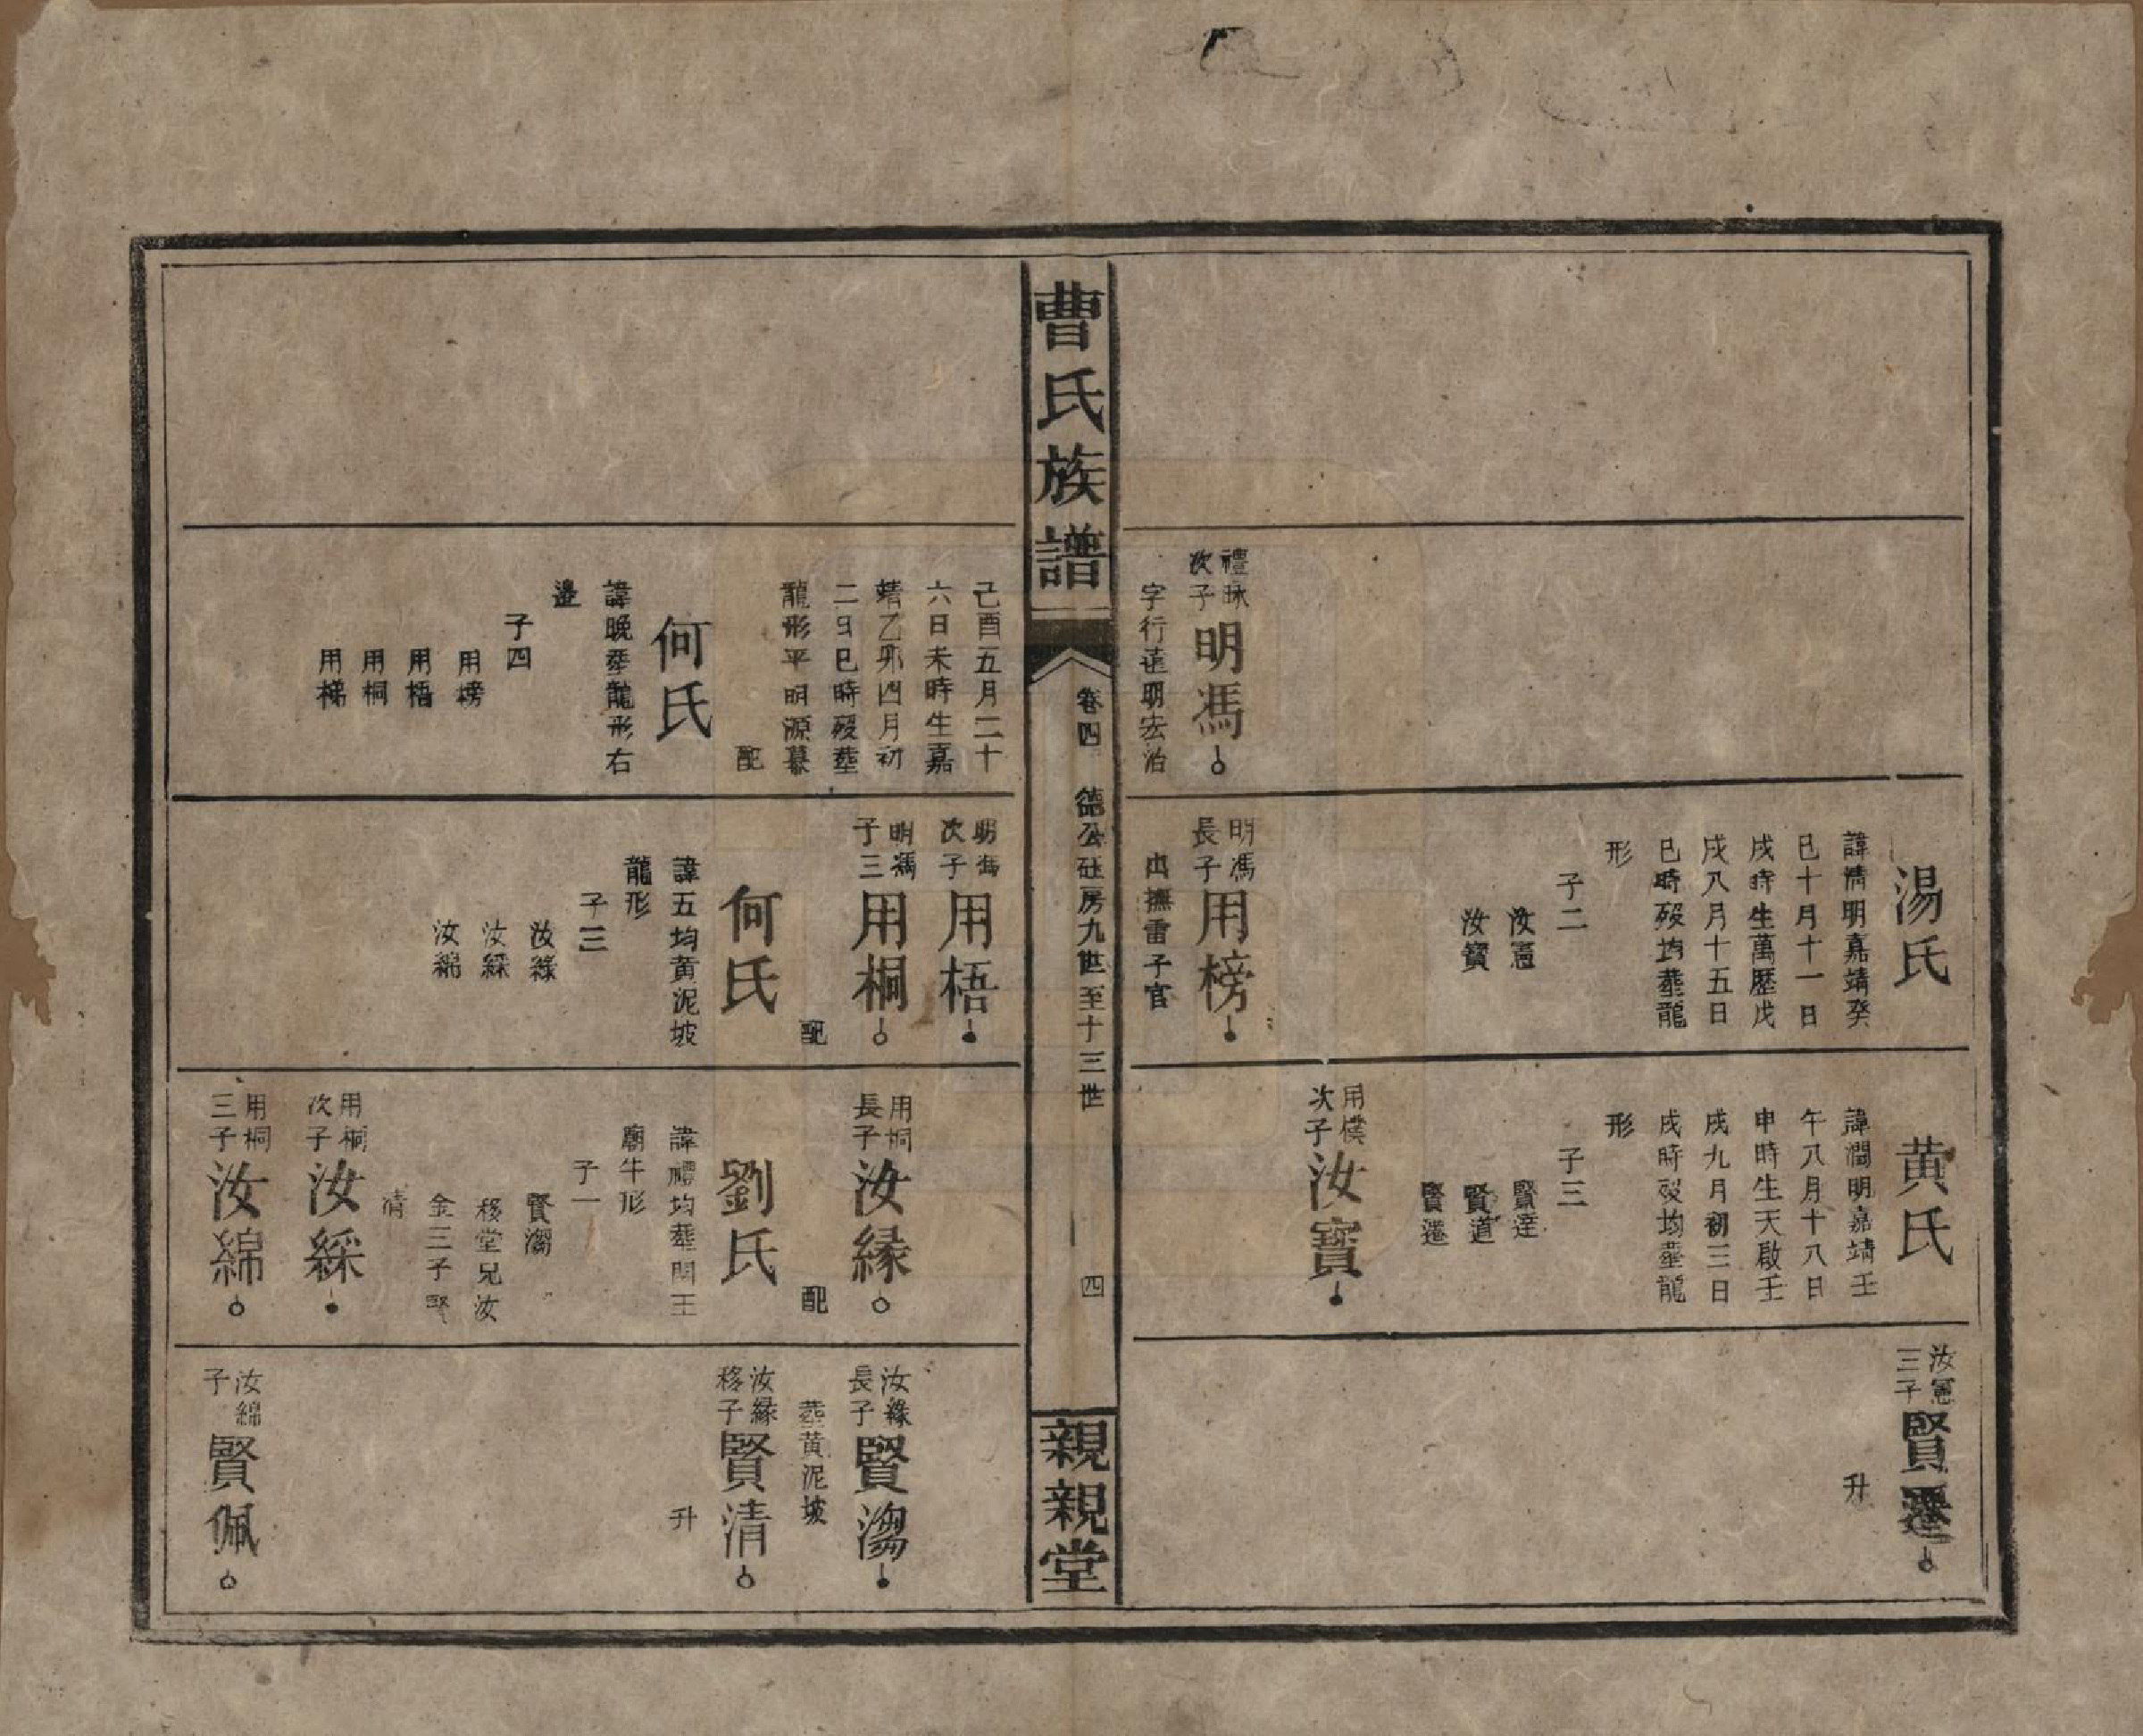 湯氏
諱清明嘉靖癸
巳十月十一日
戌時生萬歷戊
戌八月十五日
巳時殁均塟龍
形
子二
汝憲
汝寶
黃氏
諱潤明嘉靖壬
午八月十八日
申時生天啟壬
戌九月初三日
戌時殁均塟龍
形
子三
賢達
賢道
賢選
汝憲
三子
賢選
升
用樸
次子
汝寶
禮詠
次子
明馮
字行遠明宏治
明馮
長子
用榜
出撫雷子官
曹氏族譜
卷四
德公砡房九世至十三世
四
親親堂
己酉五月二十
六日未時生嘉
靖乙丣四月初
二日巳時殁塟
龍形平明源墓
配
何氏
諱晚塟龍形右
邉
子四
用榜
用梧
用桐
用梯
明馮
次子
用梧
明馮
子三
用桐
配
何氏
諱五均黃泥坡
龍形
子三
汝緣
汝綵
汝綿
用桐
長子
汝緣
配
劉氏
諱禮均塟關王
廟牛形
子一
賢瀏
移堂兄汝
金三子賢
清
用桐
次子
汝綵
用桐
三子
汝綿
汝緣
長子
賢瀏
塟黃泥坡
汝緣
移子
賢清
升
汝綿
子
賢佩